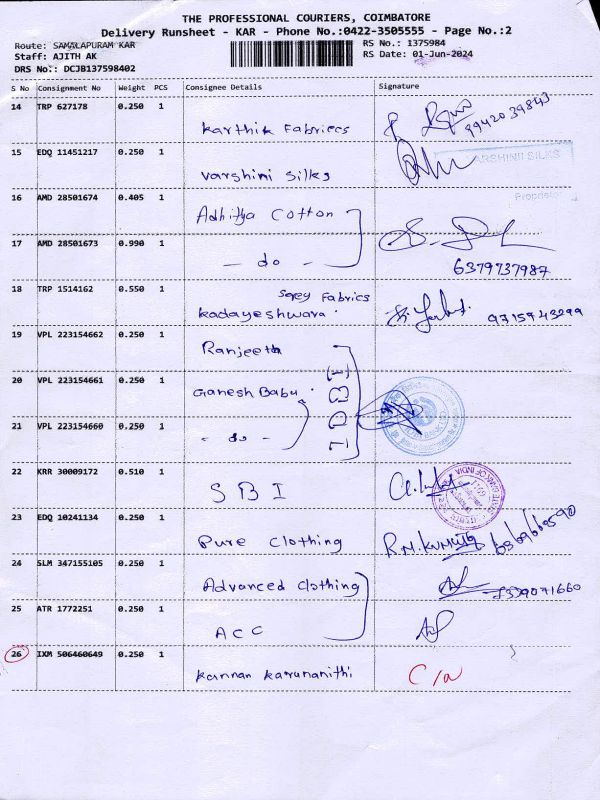 THE PROFESSIONAL COURIERS, COIMBATORE
Delivery Runsheet - KAR - Phone No.:0422-3505555 - Page No.:2
Route: SAMALAPURAM KAR
RS No.: 1375984
Staff: AJITH AK
RS Date: 01-Jun-2024
DRS No.: DCJB137598402
S No Consignment No Weight PCS Consignee Details Signature
14 TRP 627178 0.250 1
Karthik Fabriecs 9942039843
15 EDQ 11451217 0.250 1
Varshini Silks
ARSHINI SILKS
16 AMD 28501674 0.405 1
Proprietor
Adhitya Cotton
17 AMD 28501673 0.990 1
- do -
6379737987
18 TRP 1514162 0.550 1
Fabrics
Kadayeshwara 9715943299
19 VPL 223154662 0.250 1
Ranjeeth
20 VPL 223154661 0.250 1
Ganesh Babu
IDBI
21 VPL 223154660 0.250 1
- do -
22 KRR 30009172 0.510 1
SBI
STATE BANK OF INDIA
23 EDQ 10241134 0.250 1
Pure Clothing R.M.KUMAR
24 SLM 347155105 0.250 1
Advanced Clothing
25 ATR 1772251 0.250 1
ACC
26 IXM 506460649 0.250 1
Kannan Karunanithi